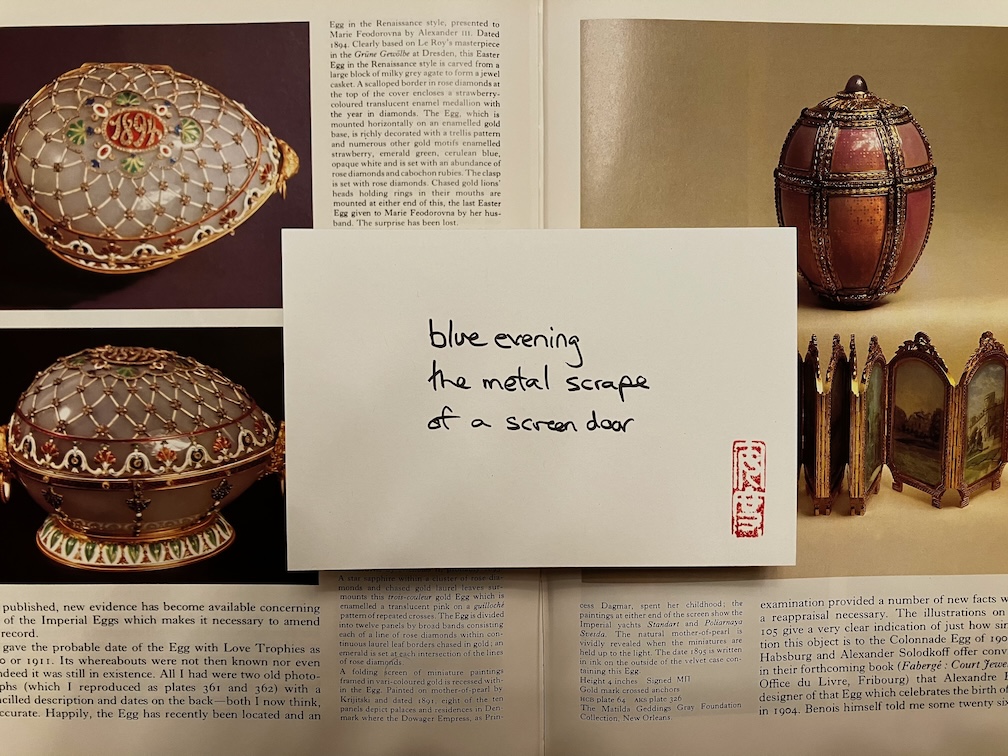 1894
Egg in the Renaissance style, presented to
Marie Feodorovna by Alexander III. Dated
1894. Clearly based on Le Roy's masterpiece
in the Grüne Gewölbe at Dresden, this Easter
Egg in the Renaissance style is carved from a
large block of milky grey agate to form a jewel
casket. A scalloped border in rose diamonds at
the top of the cover encloses a strawberry-
coloured translucent enamel medallion with
the year in diamonds. The Egg, which is
mounted horizontally on an enamelled gold
base, is richly decorated with a trellis pattern
and numerous other gold motifs enamelled
strawberry, emerald green, cerulean blue,
opaque white and is set with an abundance of
rose diamonds and cabochon rubies. The clasp
is set with rose diamonds. Chased gold lions'
heads holding rings in their mouths are
mounted at either end of this, the last Easter
Egg given to Marie Feodorovna by her hus-
band. The surprise has been lost.
blue evening
the metal scrape
of a screen door
published, new evidence has become available concerning
of the Imperial Eggs which makes it necessary to amend
record.
gave the probable date of the Egg with Love Trophies as
o or 1911. Its whereabouts were not then known nor even
ndeed it was still in existence. All I had were two old photo-
phs (which I reproduce as plates 361 and 362) with a
ncilled description and dates on the back—both I now think,
ccurate. Happily, the Egg has recently been located and an
A star sapphire within a cluster of rose dia-
monds and chased gold laurel leaves sur-
mounts this trois-couleur gold Egg which is
enamelled a translucent pink on a guilloché
pattern of repeated crosses. The Egg is divided
into twelve panels by broad bands consisting
each of a line of rose diamonds within con-
tinuous laurel leaf borders chased in gold; an
emerald is set at each intersection of the lines
of rose diamonds.
A folding screen of miniature paintings
framed in vari-coloured gold is recessed with-
in the Egg. Painted on mother-of-pearl by
Krijitski and dated 1891; eight of the ten
panels depict palaces and residences in Den-
mark where the Dowager Empress, as Prin-
cess Dagmar, spent her childhood; the
paintings at either end of the screen show the
Imperial yachts Standart and Poliarnaya
Svesda. The natural mother-of-pearl is
vividly revealed when the miniatures are
held up to the light. The date 1895 is written
in ink on the outside of the velvet case con-
taining this Egg.
Height 4 inches Signed МП
Gold mark crossed anchors
plate 64 plate 326
The Matilda Geddings Gray Foundation
Collection, New Orleans.
examination provided a number of new facts w
a reappraisal necessary. The illustrations on
105 give a very clear indication of just how sin
tion this object is to the Colonnade Egg of 190
Habsburg and Alexander Solodkoff offer conv
in their forthcoming book (Fabergé : Court Jewe
Office du Livre, Fribourg) that Alexandre I
designer of that Egg which celebrates the birth o
in 1904. Benois himself told me some twenty six